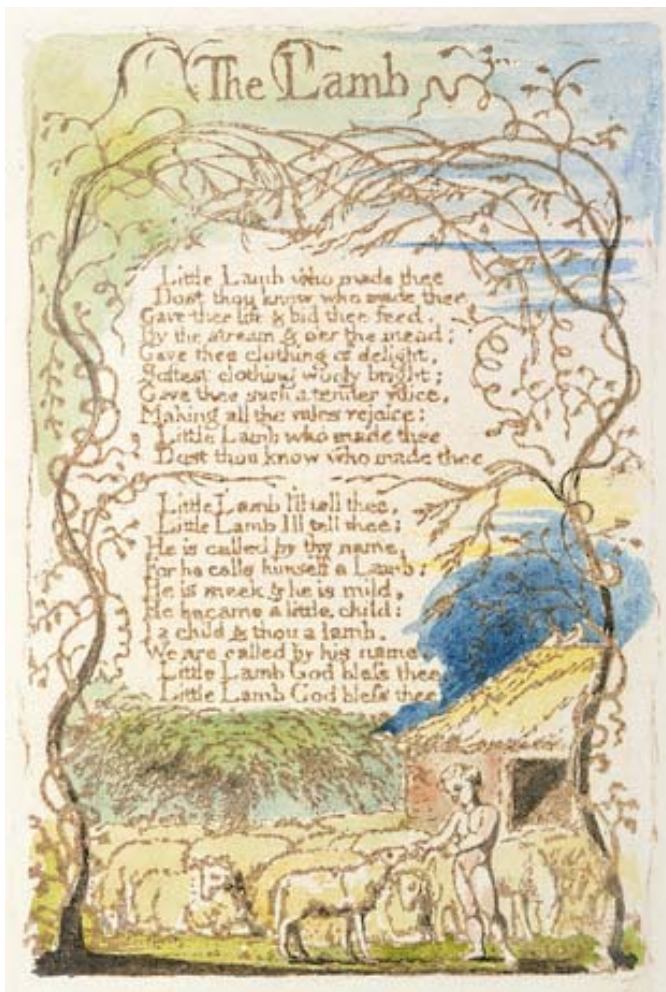 The Lamb
Little Lamb who made thee
Dost thou know who made thee
Gave thee life & bid thee feed.
By the stream & o'er the mead;
Gave thee clothing of delight,
Softest clothing wooly bright;
Gave thee such a tender voice,
Making all the vales rejoice:
Little Lamb who made thee
Dost thou know who made thee
Little Lamb I'll tell thee,
Little Lamb I'll tell thee;
He is called by thy name,
For he calls himself a Lamb:
He is meek & he is mild,
He became a little child:
I a child & thou a lamb,
We are called by his name.
Little Lamb God bless thee
Little Lamb God bless thee